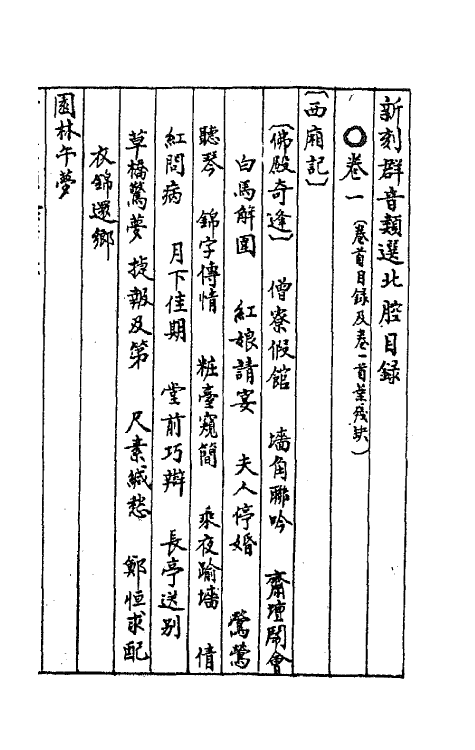 新刻群音類選北腔目録
〇卷一(卷首目録及卷一首葉殘缺)
〔西廂記〕
〔佛殿奇逢〕 僧寮假館 墻角聯吟 齋壇鬧會
白馬解圍 紅娘請宴 夫人停婚 鶯鶯
聽琴 錦字傳情 粧臺窺簡 乘夜踰墻 倩
紅問病 月下佳期 堂前巧辯 長亭送别
草橋驚夢 捷報及第 尺素緘愁 鄭恒求配
衣錦還鄉
園林午夢